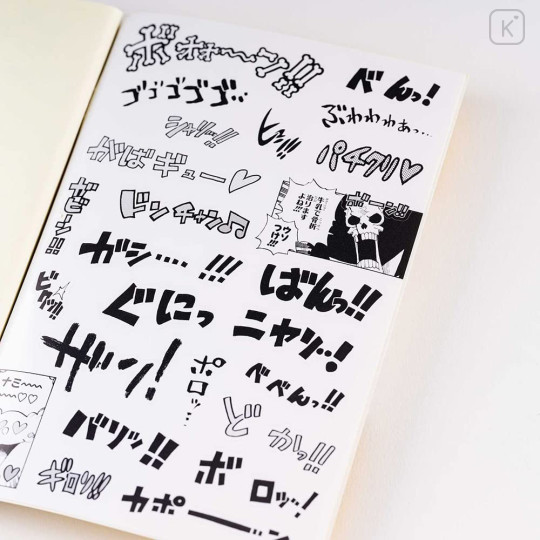 ボオォ〜〜ン!!!
べんっ!
ゴゴゴゴゴ…
ぶわわわぁっ…
シャリッ!!
ヒッ!!
パチクリ♡
がばギュー♡
ガビーン!!
ドンチャン♪
牛乳で骨折
治ります
よね!!!
ウソ
つけ!!
ボーン!!
ガシ…. !!!
ばんっ!!
ビクッ!!
ぐにっ
ニヤッ…!
ザザン!!
ポロッ…
べべんっ!!
ど
かっ!!
ナミ〜〜
バリッ!!
ボ
ロッ…!
ギロリ!!
カポーーン
K